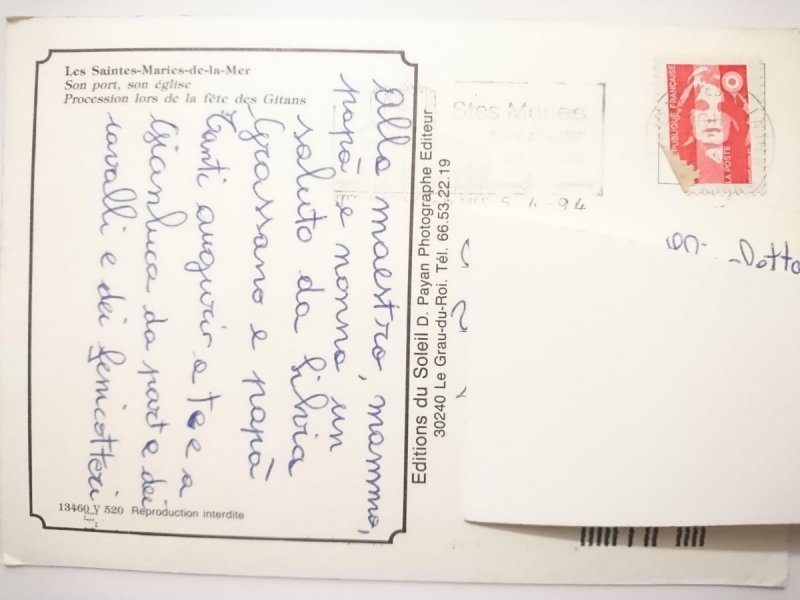 Les Saintes-Maries-de-la-Mer
Son port, son église
Procession lors de la fête des Gitans
alla maestro, mamma,
papà e nonna un
saluto da Silvia
Grassano e papà
Tanti auguri a te e a
Gianluca da parte dei
cavalli e dei fenicotteri
13460 V 520 Reproduction interdite
Editions du Soleil D. Payan Photographe Editeur
30240 Le Grau-du-Roi. Tél. 66.53.22.19
Stes Maries
SON EGLISE
5-4-94
REPUBLIQUE FRANÇAISE
LA POSTE